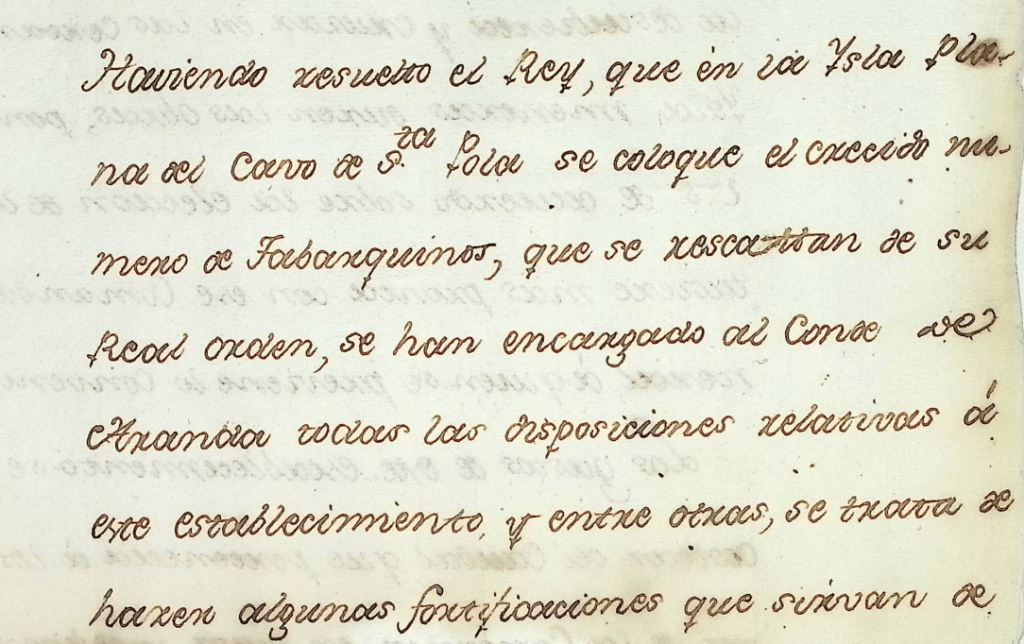 Haviendo resuelto el Rey, que én la Ysla Pla-
na del Cavo de S.ta Pola se coloque el crecido nu-
mero de Tabarquinos, que se rescattan de su
Real orden, se han encargado al Conde de
Aranda todas las disposiciones relativas á
este establecimiento, y entre otras, se trata de
hazer algunas fortificaciones que sirvan de